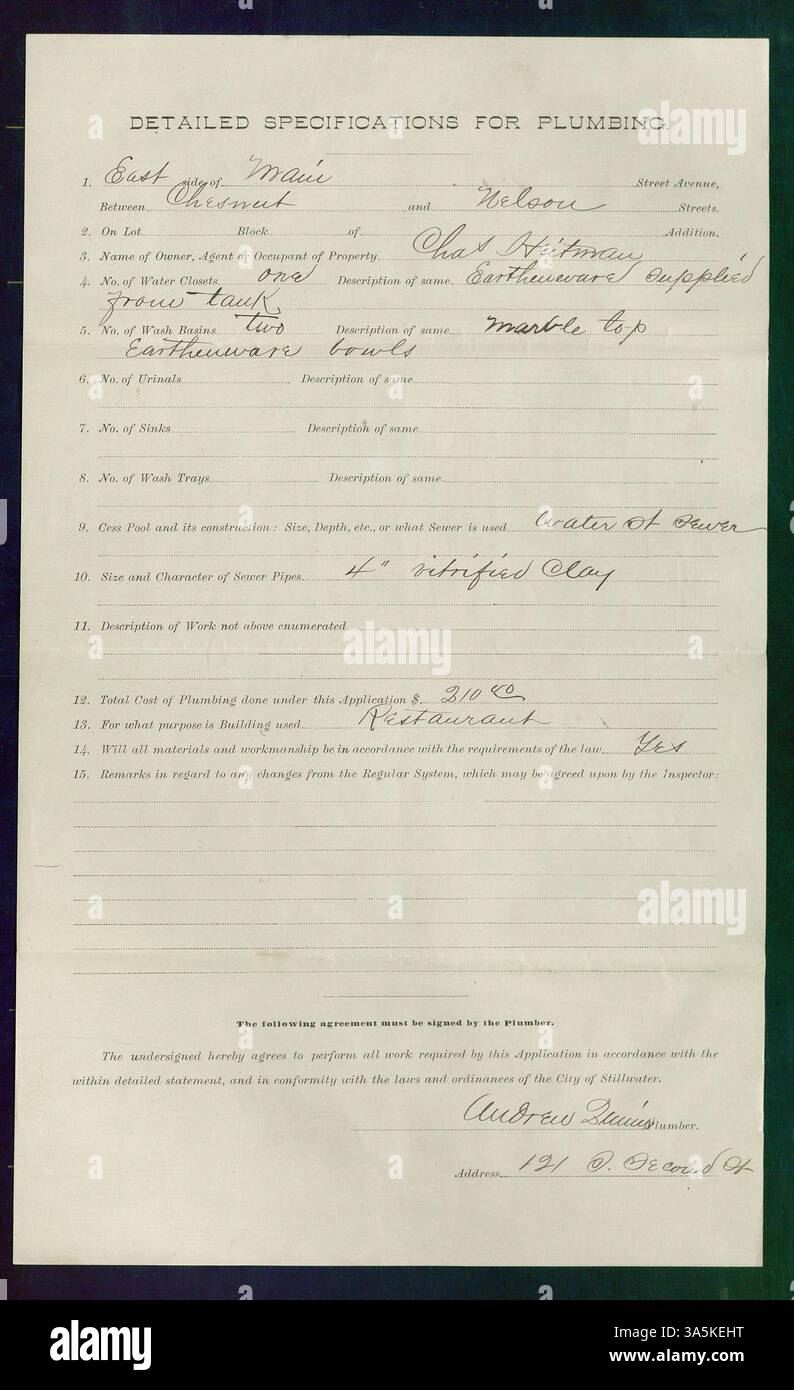 DETAILED SPECIFICATIONS FOR PLUMBING.
1. East side of Main Street Avenue,
Between Chesnut and Nelson Streets.
2. On Lot Block of Addition.
3. Name of Owner, Agent or Occupant of Property Chas Heitman
4. No. of Water Closets one Description of same Earthenware supplied
from tank
5. No. of Wash Basins two Description of same marble top
Earthenware bowls
6. No. of Urinals Description of same
7. No. of Sinks Description of same
8. No. of Wash Trays Description of same
9. Cess Pool and its construction: Size, Depth, etc., or what Sewer is used Water St Sewer
10. Size and Character of Sewer Pipes 4" vitrified Clay
11. Description of Work not above enumerated
12. Total Cost of Plumbing done under this Application $ 210 40
13. For what purpose is Building used Restaurant
14. Will all materials and workmanship be in accordance with the requirements of the law Yes
15. Remarks in regard to any changes from the Regular System, which may be agreed upon by the Inspector:
The following agreement must be signed by the Plumber.
The undersigned hereby agrees to perform all work required by this Application in accordance with the
within detailed statement, and in conformity with the laws and ordinances of the City of Stillwater.
Andrew Plumber.
Address 121 S. Second St
alamy
alamy
alamy
a alamy
Image ID: 3A5KEHT
www.alamy.com